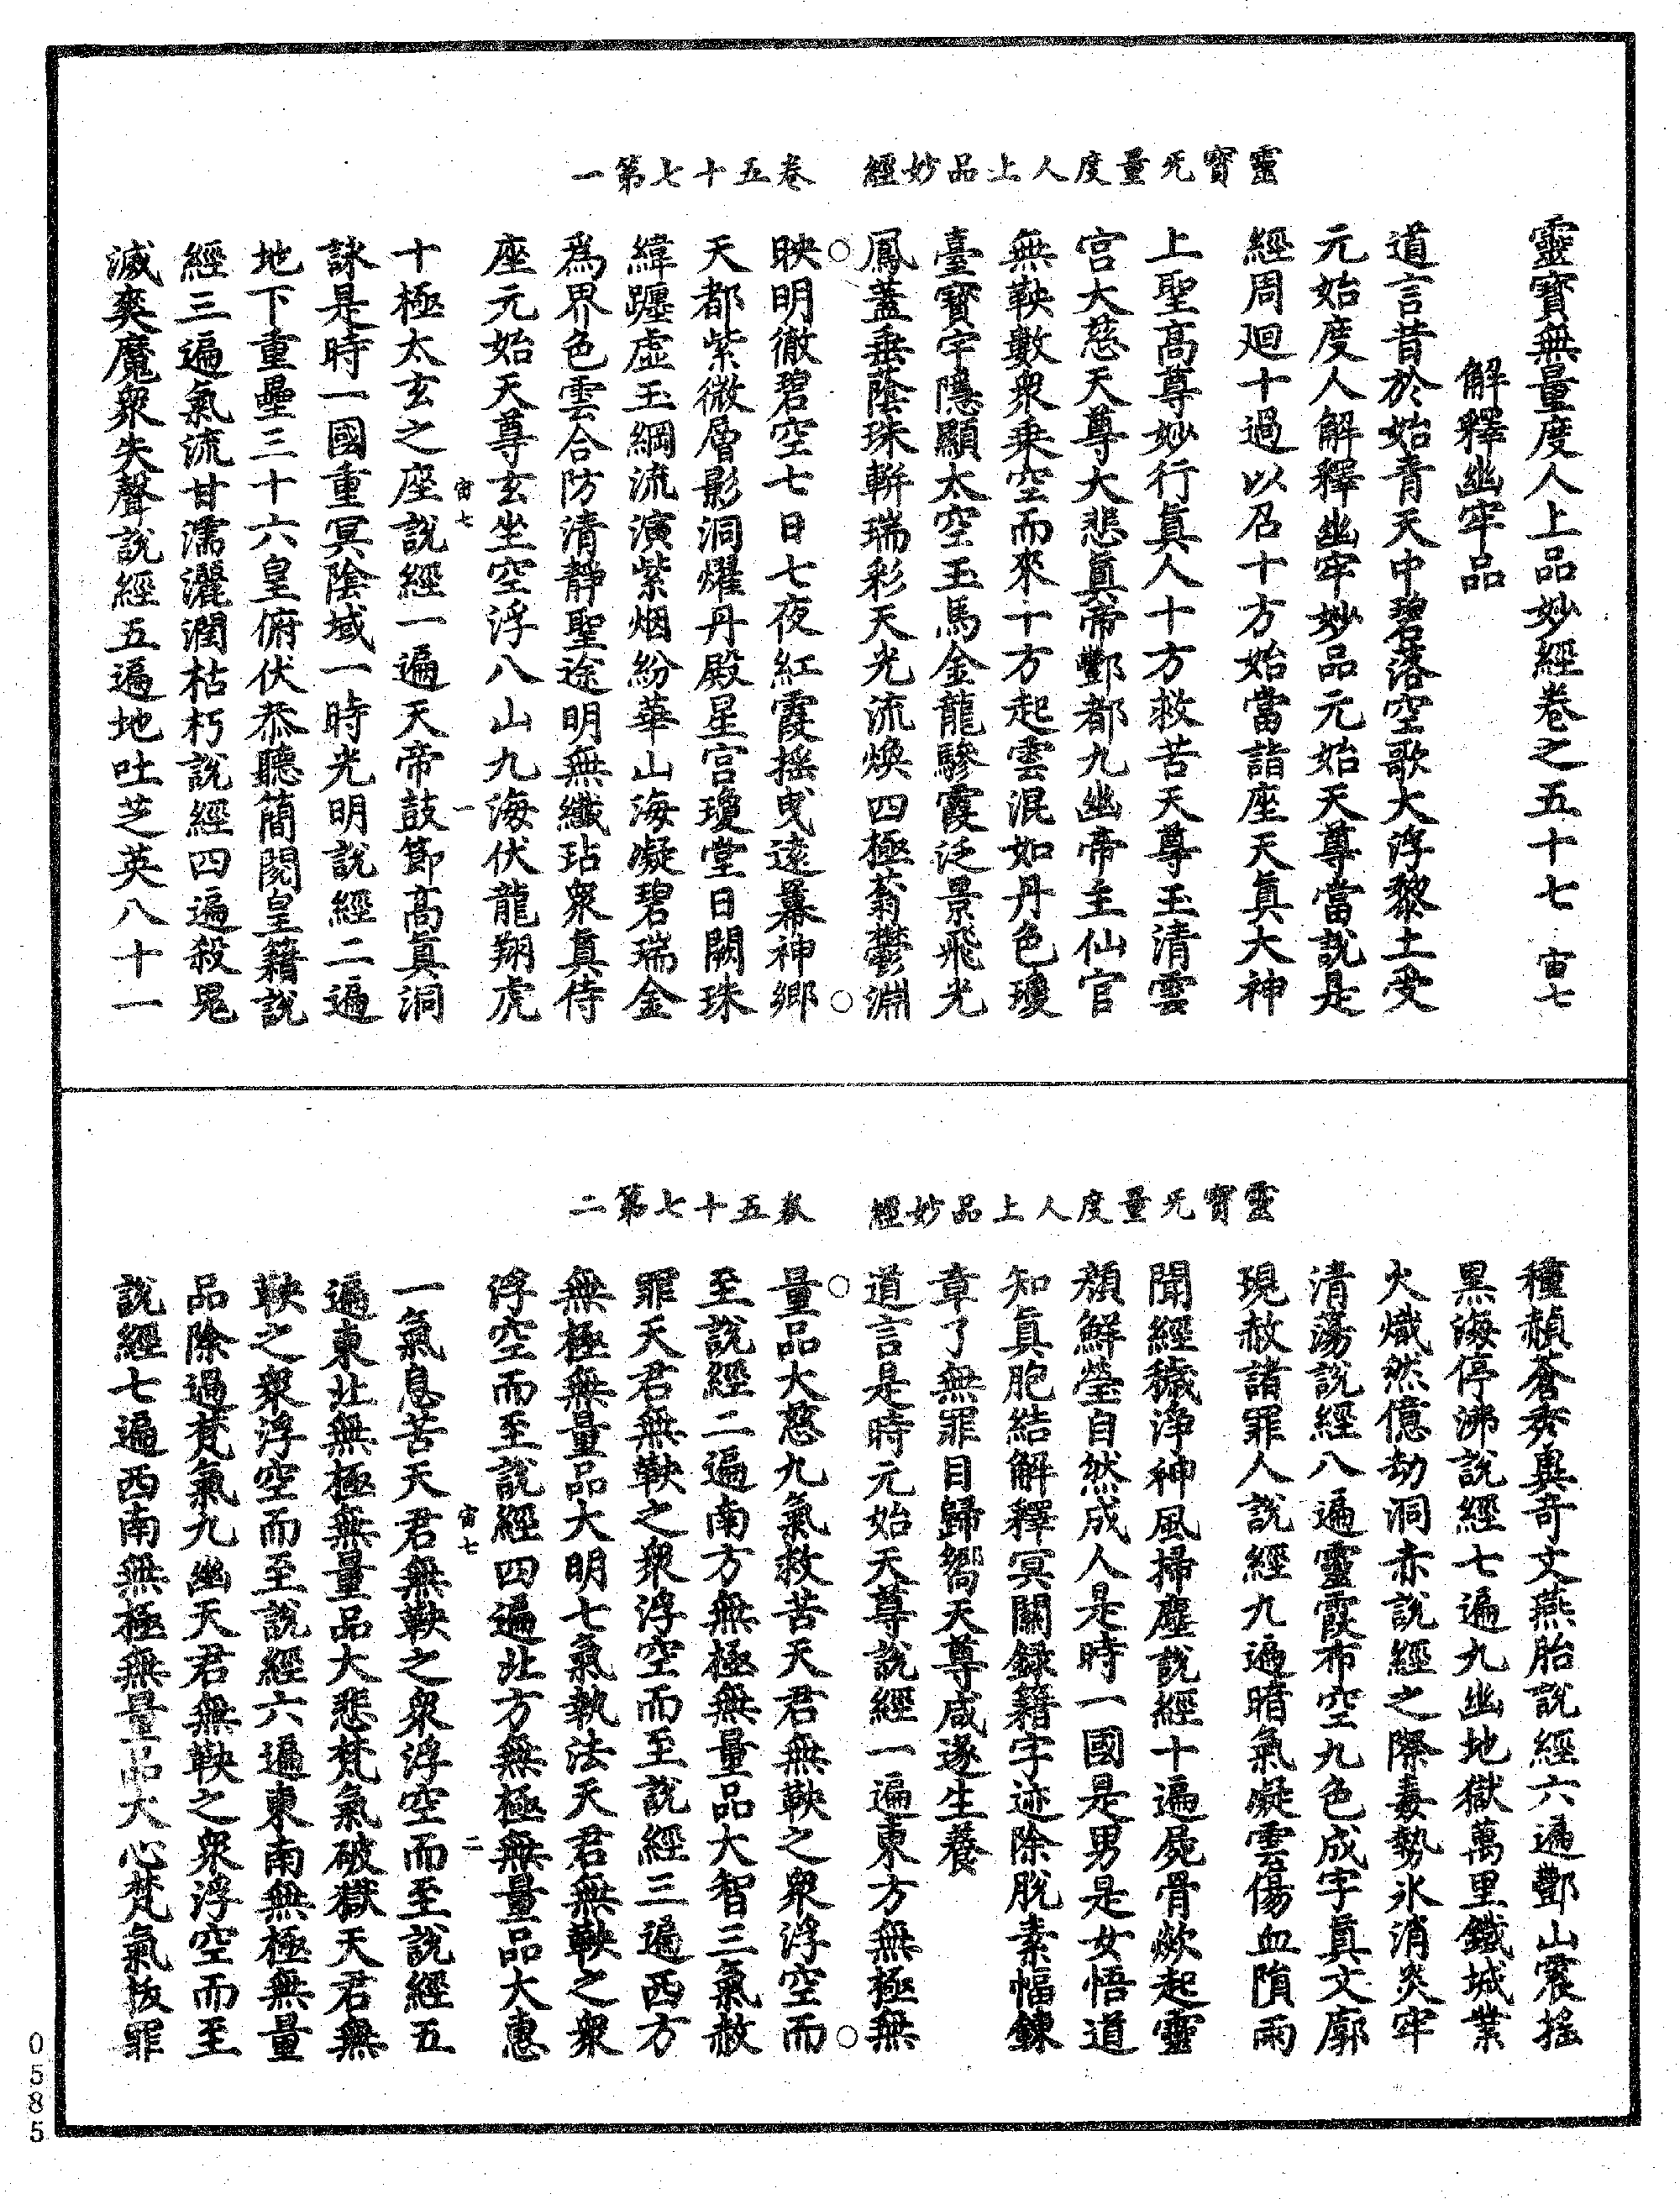 靈寶无量度人上品妙經　卷五十七第一
靈寶無量度人上品妙經卷之五十七　宙七
解釋幽牢品
道言昔於始青天中碧落空歌大浮黎土受
元始度人解釋幽牢妙品元始天尊當說是
經周廻十過以召十方始當詣座天真大神
上聖高尊妙行真人十方救苦天尊玉清雲
宮大慈天尊大悲真帝酆都九幽帝主仙官
無鞅數衆乘空而來十方起雲混如丹色瓊
臺寶宇隱顯太空玉馬金龍驂霞泛景飛光
鳳蓋垂蔭珠軿瑞彩天光流煥四極蓊鬱淵
映明徹碧空七日七夜紅霞摇曳遠羃神鄉
天都紫微層影洞耀丹殿星宫瓊堂日闕珠
緯躔虛玉綱流演紫烟紛華山海凝碧瑞金
爲界色雲合防清靜聖途明無纖玷衆真侍
座元始天尊玄坐空浮八山九海伏龍翔虎
宙七　一
十極太玄之座說經一遍天帝鼓節高真洞
詠是時一國重冥陰域一時光明說經二遍
地下重壘三十六皇俯伏恭聽簡閱皇籍說
經三遍氣流甘濡灑潤枯朽說經四遍殺鬼
滅爽魔衆失聲說經五遍地吐芝英八十一
靈寶无量度人上品妙經　卷五十七第二
種頳蒼秀異奇文燕胎說經六遍酆山震摇
黑海停沸說經七遍九幽地獄萬里鐵城業
火熾然億劫洞赤說經之際毒勢氷消炎牢
清蕩說經八遍靈霞布空九色成字真文廓
現赦諸罪人說經九遍暗氣凝雲傷血隕雨
聞經穢淨神風掃塵說經十遍屍骨歘起靈
顔鮮瑩自然成人是時一國是男是女悟道
知真胞結解釋冥關錄籍字迹除脫素幅鍊
章了無罪目歸嚮天尊咸遂生養
道言是時元始天尊說經一遍東方無極無
量品大慈九氣救苦天君無鞅之衆浮空而
至說經二遍南方無極無量品大智三氣赦
罪天君無鞅之衆浮空而至說經三遍西方
無極無量品大明七氣執法天君無鞅之衆
浮空而至說經四遍北方無極無量品大惠
宙七　二
一氣息苦天君無鞅之衆浮空而至說經五
遍東北無極無量品大悲梵氣破獄天君無
鞅之衆浮空而至說經六遍東南無極無量
品除過梵氣九幽天君無鞅之衆浮空而至
說經七遍西南無極無量品大心梵氣拔罪
0585